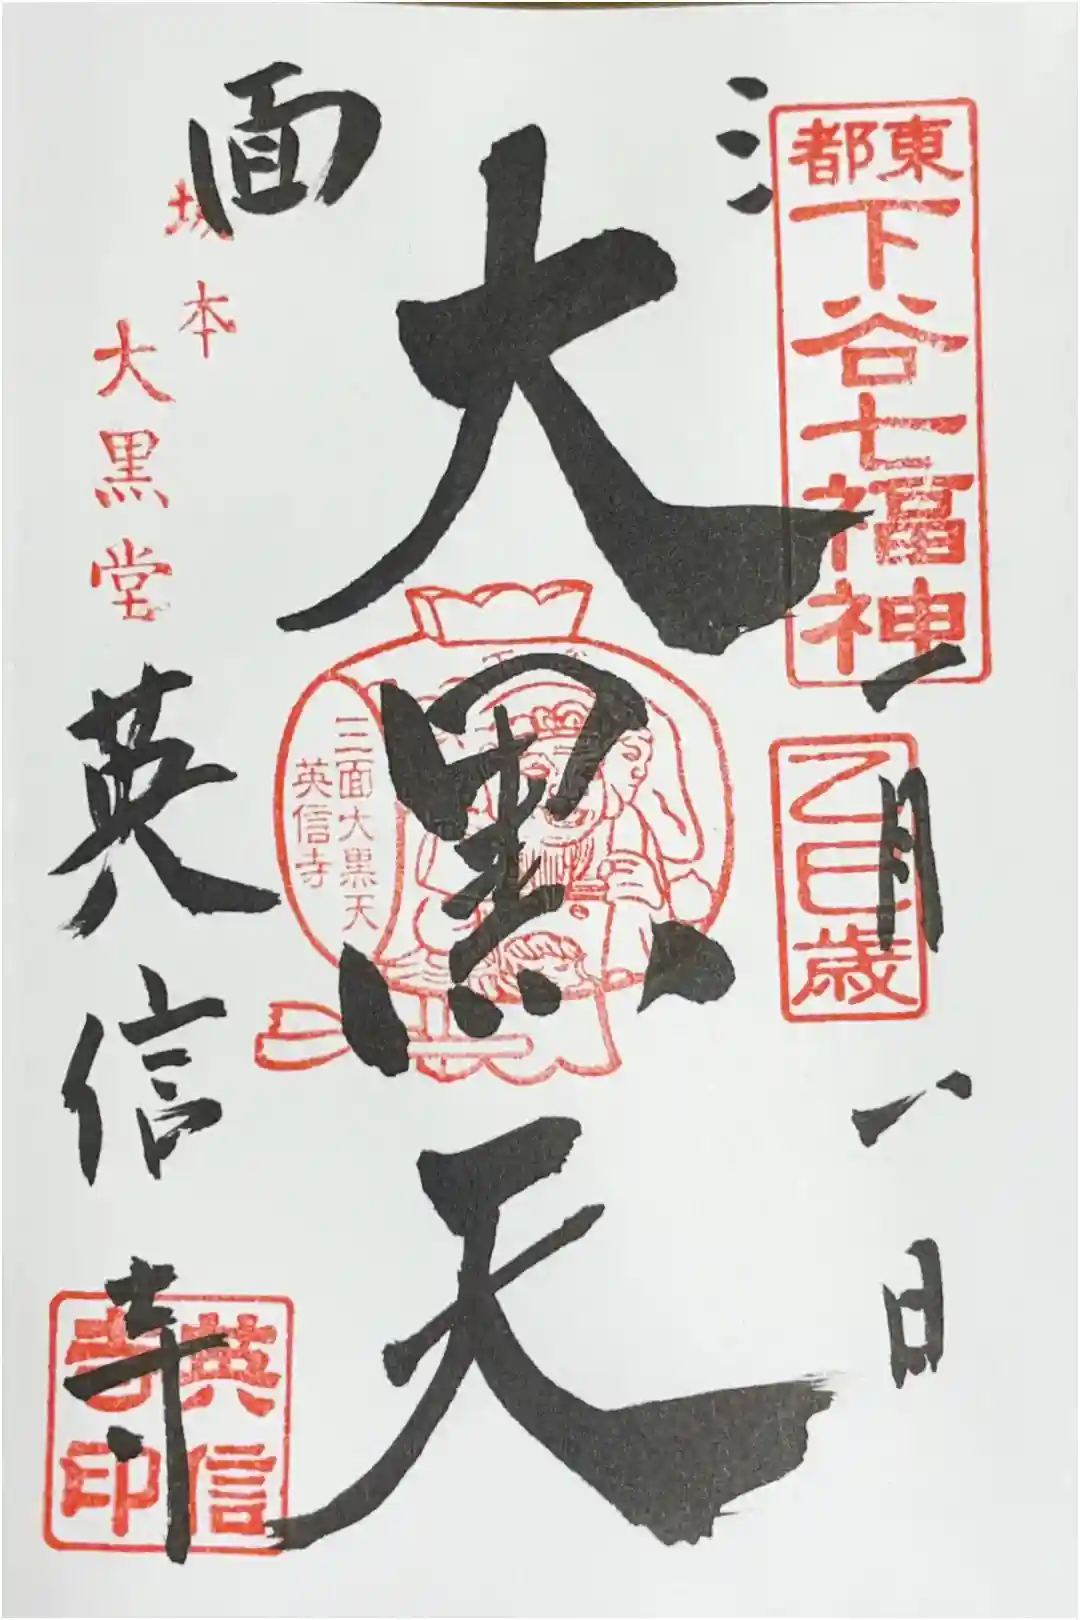 三
東都
下谷七福神
乙巳歳
一月八日
大黒天
三面大黒天
英信寺
面
坂本
大黒堂
英信寺
英信寺印